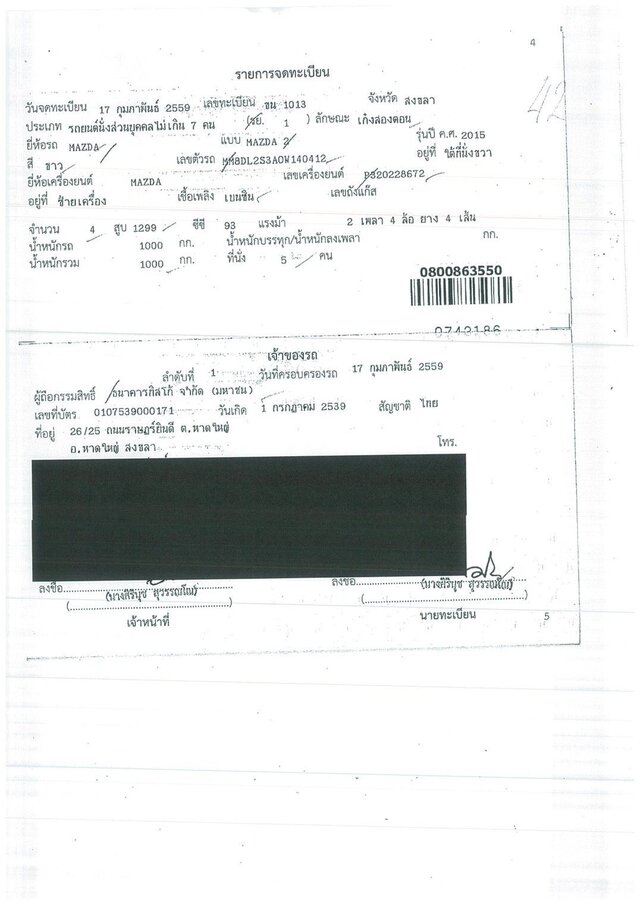 4
รายการจดทะเบียน
42
วันจดทะเบียน 17 กุมภาพันธ์ 2559 เลขทะเบียน ขน 1013 จังหวัด สงขลา
ประเภท รถยนต์นั่งส่วนบุคคลไม่เกิน 7 คน (รย. 1 ) ลักษณะ เก๋งสองตอน
ยี่ห้อรถ MAZDA แบบ MAZDA 2 รุ่นปี ค.ศ. 2015
สี ขาว เลขตัวรถ MM8DL2S3A0W140412 อยู่ที่ ใต้ที่นั่งขวา
ยี่ห้อเครื่องยนต์ MAZDA เลขเครื่องยนต์ P520228672
อยู่ที่ ซ้ายเครื่อง เชื้อเพลิง เบนซิน เลขถังแก๊ส
จำนวน 4 สูบ 1299 ซีซี 93 แรงม้า 2 เพลา 4 ล้อ ยาง 4 เส้น
น้ำหนักรถ 1000 กก. น้ำหนักบรรทุก/น้ำหนักลงเพลา กก.
น้ำหนักรวม 1000 กก. ที่นั่ง 5 คน
0800863550
0743186
เจ้าของรถ
ลำดับที่ 1 วันที่ครอบครองรถ 17 กุมภาพันธ์ 2559
ผู้ถือกรรมสิทธิ์ ธนาคารทิสโก้ จำกัด (มหาชน)
เลขที่บัตร 0107539000171 วันเกิด 1 กรกฎาคม 2539 สัญชาติ ไทย
ที่อยู่ 26/25 ถนนราษฎร์ยินดี ต.หาดใหญ่
อ.หาดใหญ่ สงขลา โทร.
ลงชื่อ ลงชื่อ
(นางศิรินุช สุวรรณโณ) (นางศิรินุช สุวรรณโณ)
เจ้าหน้าที่ นายทะเบียน 5